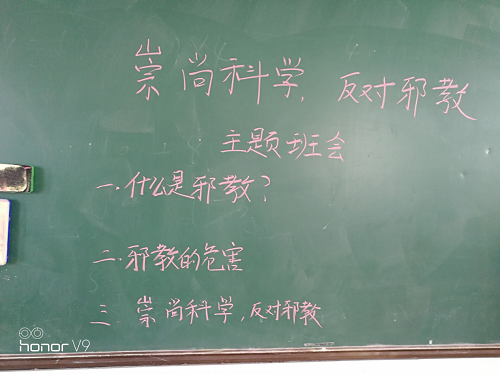 崇尚科学，反对邪教
主题班会
一.什么是邪教？
二.邪教的危害
三.崇尚科学，反对邪教
honor V9